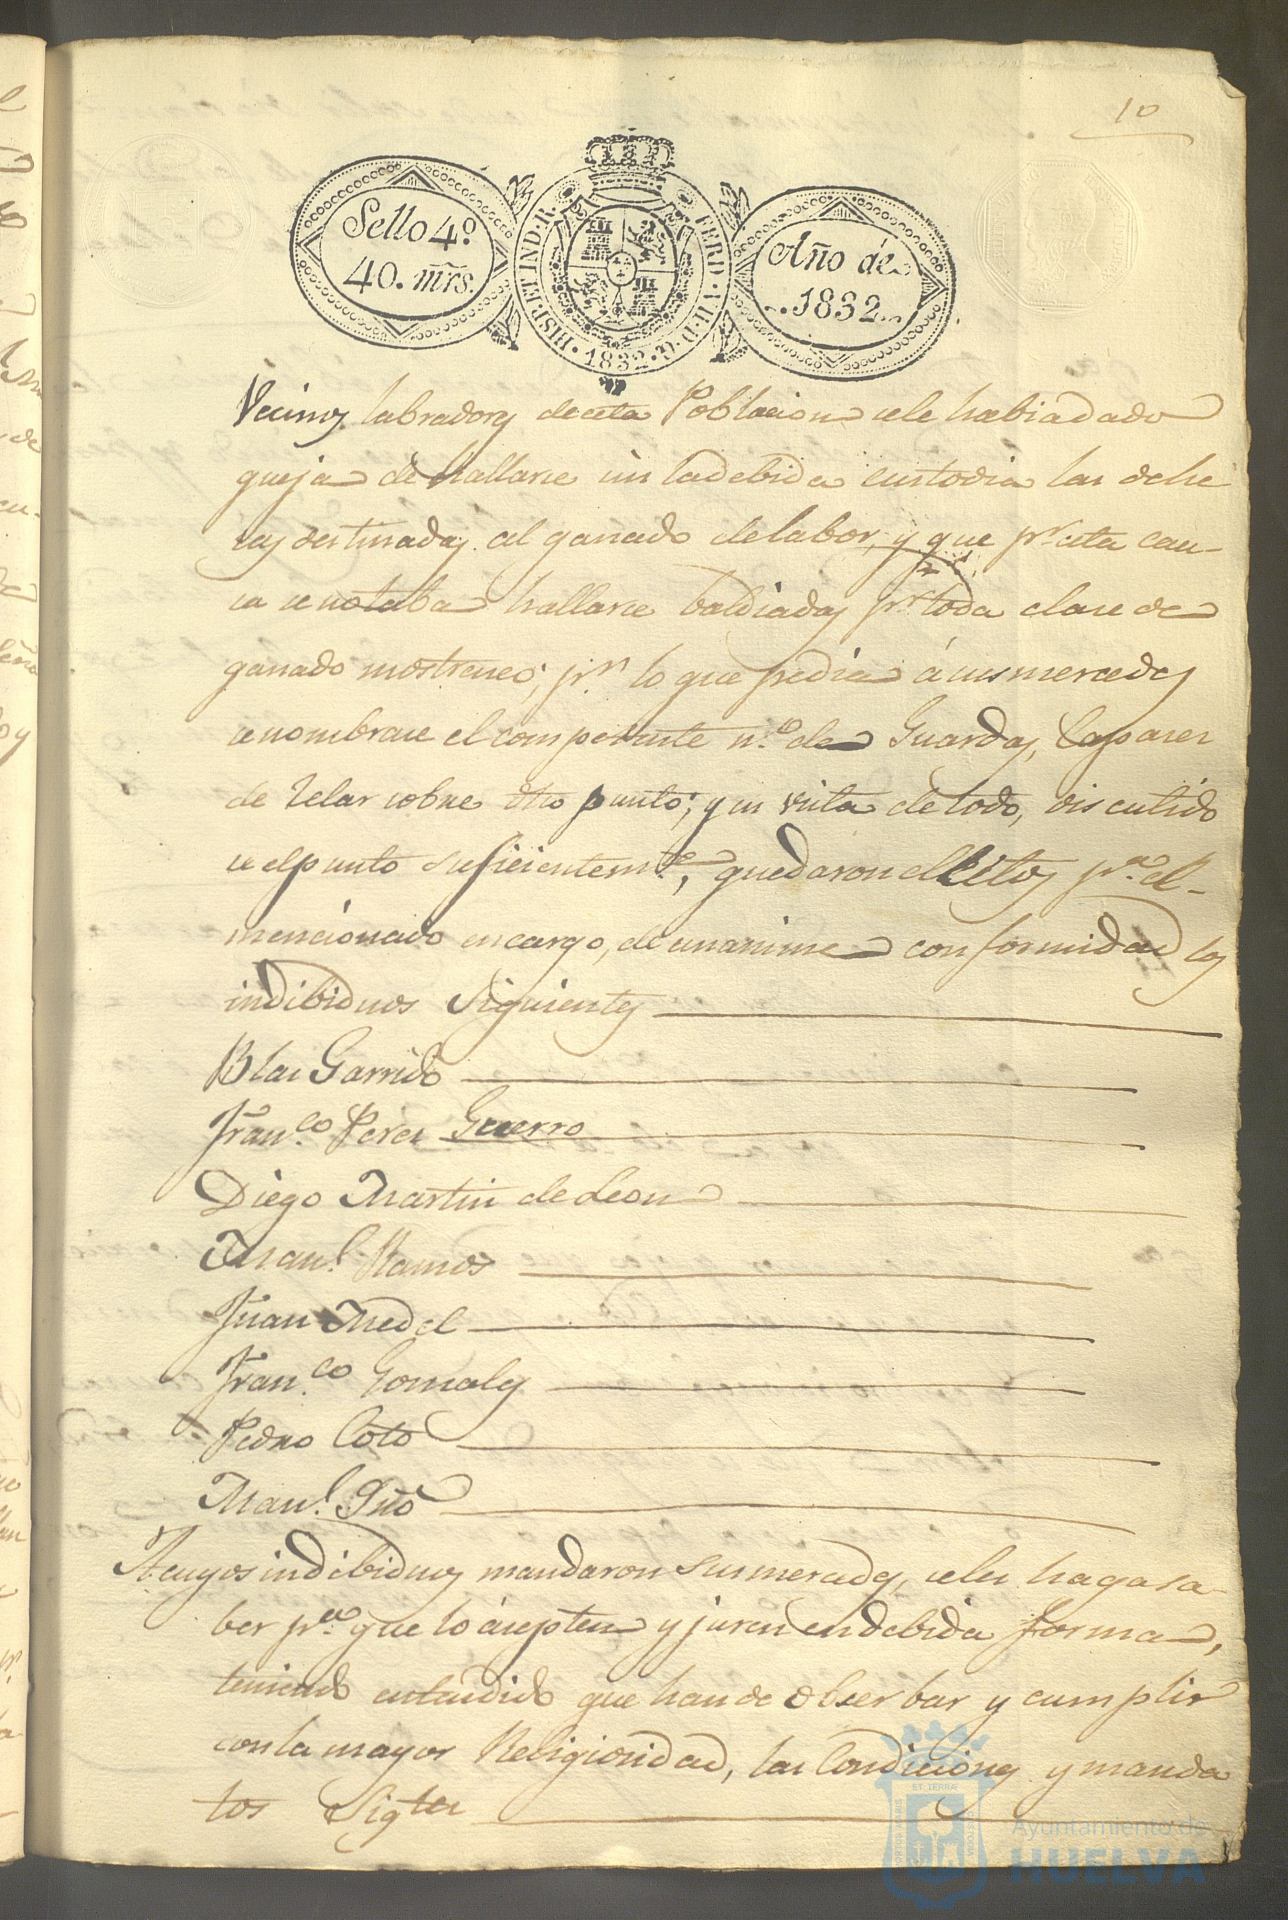 10
Sello 4º
40. mrs.
HISP. ET IND. R. FERD. VII. D. G. 1832
Año de
1832
Vecinos labradores de esta Poblacion se le habia dado
queja de hallarse sin la debida custodia las dehe
sas destinadas al ganado de labor, y que pr. esta cau-
sa se notaba hallarse baldiadas pr. toda clase de
ganado mostrenco; pr. lo que pedia á susmercedes
se nombrase el competente n.º de Guardas, Capaces
de Zelar sobre dho punto; y en vista de todo, discutido
se el punto suficientemte., quedaron electos pa. el-
mencionado encargo, de unanime conformidad los
indibiduos Siguientes
Blas Garrido
Fran.co Perez Guerro
Diego Martin de Leon
Man.l Ramos
Juan Medel
Fran.co Gonzales
Pedro Coto
Man.l
A cuyos indibiduos mandaron Susmercedes, se les haga sa-
ber pa. que lo ásepten y juren en debida forma,
teniendo entendido que han de obserbar y cumplir
con la mayor Religiosidad, las Condiciones y manda
tos Sigtes
Ayuntamiento de
HUELVA